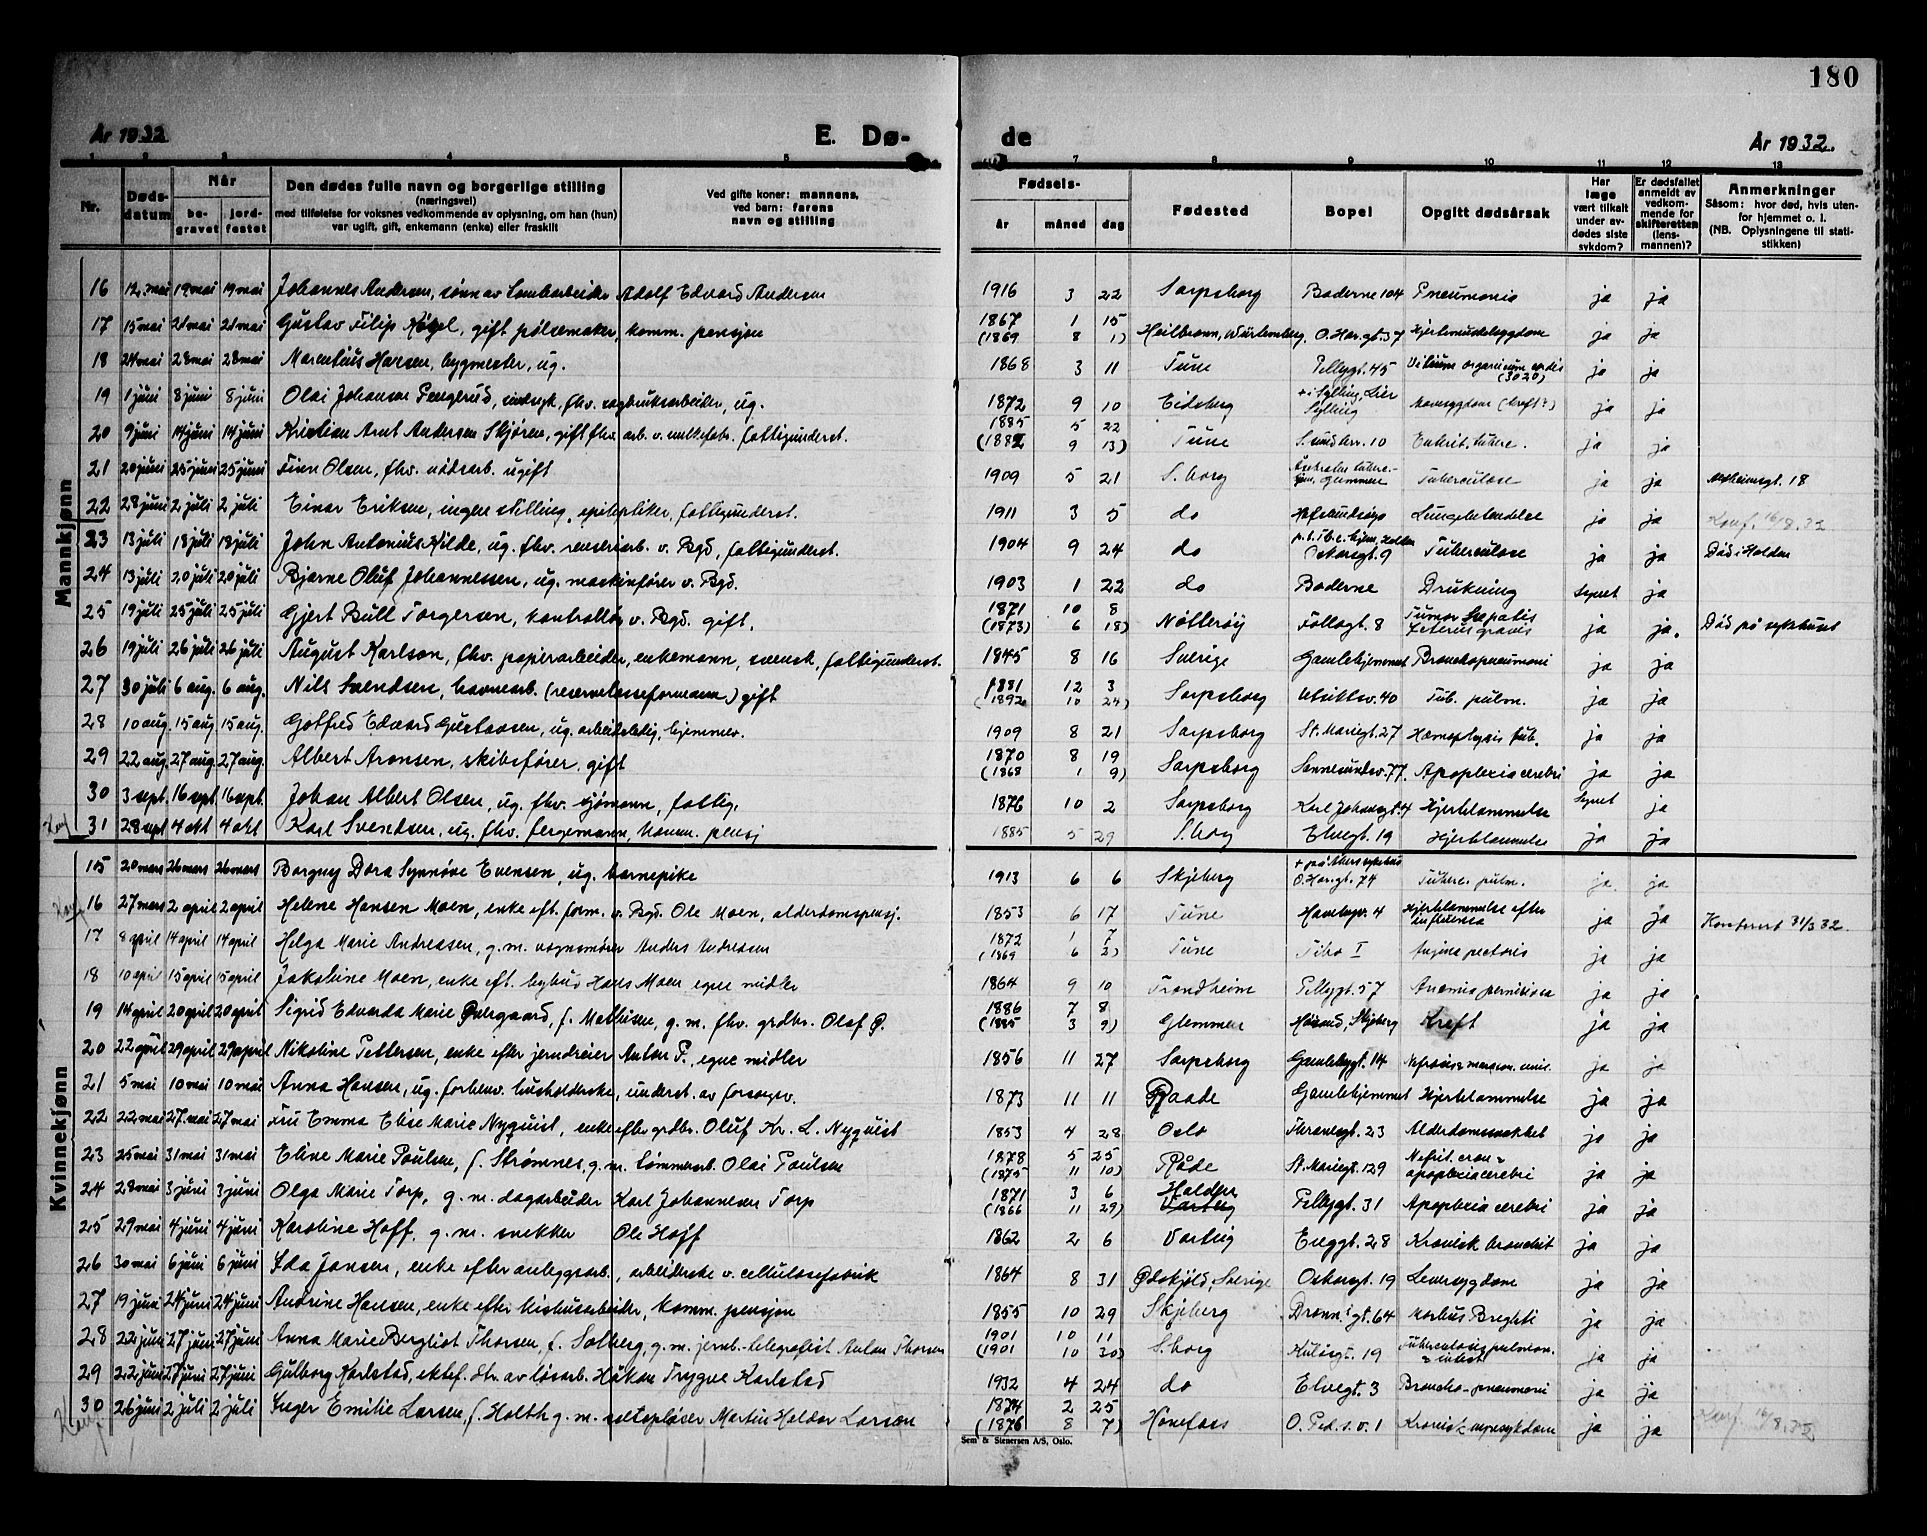 180
År 1932
E. Dø-
de
År 1932.
1 2 3 4 5
7 8 9 10 11 12 13
Nr.
Døds-
datum
Når
be-
gravet
jord-
festet
Den dødes fulle navn og borgerlige stilling
(næringsvei)
med tilføielse for voksnes vedkommende av oplysning, om han (hun)
var ugift, gift, enkemann (enke) eller fraskilt
Ved gifte koner: mannens,
ved barn: farens
navn og stilling
Fødsels-
år måned dag
Fødested
Bopel
Opgitt dødsårsak
Har
læge
vært tilkalt
under av-
dødes siste
sykdom?
Er dødsfallet
anmeldt av
vedkom-
mende for
skifteretten
(lens-
mannen)?
Anmerkninger
Såsom: hvor død, hvis uten-
for hjemmet o. l.
(NB. Oplysningene til stati-
stikken)
Mannkjønn
16 12. mai 19 mai 19 mai Johannes Andersen, sønn av Adolf Edvard Andersen 1916 3 22 Sarpsborg Baderne 104 Pneumonia ja ja
17 15 mai 21 mai 21 mai Gustav Filip Kögel, gift pølsemaker, komm. pensjon 1867 1 15 (1869 8 1) Heilbronn, Würtemberg, O. Har. gt. 37 ja ja
18 24 mai 28 mai 28 mai Marentius Hansen, bygmester, ug. 1868 3 11 Tune Pellygt. 45 Vitium organicum cordis (3020) ja ja
19 1 juni 8 juni 8 juni Olai Johansen sindsyk, fhv. sagbruksarbeider, ug. 1872 9 10 Eidsberg + i Sylling, Lier Sylling Mavesygdom (kreft?) ja ja
20 9 juni 14 juni 14 juni Kristian Arnt Andersen Skjøren, gift fhv. arb. v. fattigunderst. 1885 5 22 (1882 9 13) Tune 10 Enterit. tuberc. ja ja
21 20 juni 25 juni 25 juni Finn Olsen, fhv. nødsarb. ugift 1909 5 21 S. borg Glemmen Tuberculose ja ja 18
22 28 juni 2 juli 2 juli Einar Eriksen, ingen stilling, epileptiker, fattigunderst. 1911 3 5 do Lungebetendelse ja ja Konf. 16/8.32
23 13 juli 18 juli 18 juli John Antonius Hilde, ug. fhv. renseriarb. v. Bgd, fattigunderst. 1904 9 24 do p.t. Tb.c. hjem, Halden Oskarsgt. 9 Tuberculose ja ja Død i Halden
24 13 juli 20 juli 20 juli Bjarne Oluf Johannessen, ug. maskinfører v. Bgd. 1903 1 22 do Baderne Drukning Synet ja
25 19 juli 25 juli 25 juli Gjert Bull Torgersen, kontrollør v. Bgd. gift. 1871 10 8 (1873) 6 18) Nøtterøy Follogt. 8 Tumor Hepatis Icterus gravis ja ja. Død på sykehuset
26 19 juli 26 juli 26 juli August Karlson, fhv. papirarbeider, enkemann, svensk, fattigunderst. 1845 8 16 Sverige Gamlehjemmet Bronchopneumoni ja ja
27 30 juli 6 aug. 6 aug. Nils Svendsen, havnearb. (reservelosseformann) gift 1881 12 3 (1892 10 24) Sarpsborg Utsiktsv. 40 Tub. pulm. ja ja
28 10 aug. 15 aug. 15 aug. Gotfred Edvard Gustavsen, ug. arbeidsledig, hjemmev. 1909 8 21 Sarpsborg St. Mariegt. 27 Hæmoptysis tub. ja ja
29 22 aug. 27 aug. 27 aug. Albert Aronsen, skibsfører, gift 1870 8 19 (1868 1 9) Sarpsborg Sannesundsv. 77. Apoplexia cerebri ja ja
30 3 sept. 16 sept. 16 sept. Johan Albert Olsen, ug. fhv. sjømann, fattig. 1876 10 2 Sarpsborg Karl Johansgt. 4 Hjertelammelse Synet ja
31 28 sept 4 okt 4 okt Karl Svendsen, ug. fhv. fergemann, komm. pensj 1885 5 29 S. borg Elvegt. 19 Hjertelammelse ja ja
Kvinnekjønn
15 20 mars 26 mars 26 mars Borgny Dora Synnøve Evensen, ug. barnepike 1913 6 6 Skjeberg + på Akers sykehus O. Har. gt. 74 Tuberc. pulm. ja ja
16 27 mars 2 april 2 april Helene Hansen Moen, enke eft. form. v. Bgd. Ole Moen, alderdomspensj. 1853 6 17 Tune 4 Hjertelammelse efter influensa ja ja Konferert 31/3 32.
17 8 april 14 april 14 april Helga Marie Andreassen, g.m. vognsmører Anders Andreassen 1872 1 7 (1869 6 2) Tune Tibo I Angina pectoris ja ja
18 10 april 15 april 15 april Jakobine Moen, enke eft. bybud Hans Moen egne midler 1864 9 10 Trondheim Pellygt. 57 Anæmia perniciosa ja ja
19 14 april 20 april 20 april Sigrid Edvarda Marie Østergaard, f. Mathisen, g.m. fhv. grdbr. Olaf Ø. 1886 7 8 (1885 3 9) Glemmen Skjeberg Kreft ja ja
20 22 april 29 april 29 april Nikoline Pettersen, enke efter jerndreier Anton P., egne midler 1856 11 27 Sarpsborg Gamlebygt. 14 ja ja
21 5 mai 10 mai 10 mai Anna Hansen, ug. forhenv. husholderske, underst. av forsorgsv. 1873 11 11 Raade Gamlehjemmet Hjertelammelse ja ja
22 22 mai 27. mai 27 mai Fru Emma Elise Marie Nyquist, enke efter grdbr. Oluf Kr. L. Nyquist 1853 4 28 Oslo Thranesgt. 23 Alderdomssvakhet ja ja
23 25 mai 31 mai 31 mai Eline Marie Paulsen, f. Strømnes, g.m. tømmerarb. Olai Paulsen 1878 5 25 (1875 11 10) Råde St. Mariegt. 129 Nefrit. cron. apoplexia cerebri ja ja
24 28 mai 3 juni 3 juni Olga Marie Torp, g.m. dagarbeider Karl Johannesen Torp 1871 3 6 (1866 11 29) Halden Varteig Pellygt. 31 Apoplexia cerebri ja ja
25 29 mai 4 juni 4 juni Karoline Hoff, g.m. snekker Ole Hoff 1862 2 6 Varteig Enggt. 28 Kronisk bronchit ja ja
26 30 mai 6 juni 6 juni Ida Jansen, enke efter anleggsarb., arbeiderske v. cellulosefabrik 1864 8 31 Ødskjöld, Sverige Oskarsgt. 19 Leversygdom ja ja
27 19 juni 24 juni 24 juni Andrine Hansen, enke efter komm. pensjon 1855 10 29 Skjeberg Dronn.gt. 64 Morbus Brightii ja ja
28 22 juni 27 juni 27 juni Anna Marie Bergliot Thorsen, f. Solberg, g.m. jernb.-telegrafist Anton Thorsen 1901 10 11 (1901 10 30) S. borg 19 Tuberculosis pulmon. & intest ja ja
29 22 juni 27 juni 27 juni Gulborg Karlstad, ektef. dtr. av løsarb. Håkon Trygve Karlstad 1932 4 24 do Elvegt. 3 Broncho-pneumoni ja ja
30 26 juni 2 juli 2 juli Inger Emilie Larsen, f. Holth g.m. Martin Haldor Larsen 1874 2 25 (1876 8 7) Hønefoss O. Ped. s.v. 1 Kronisk ja ja Konf. 16/8.32
Sem & Stenersen A/S, Oslo.